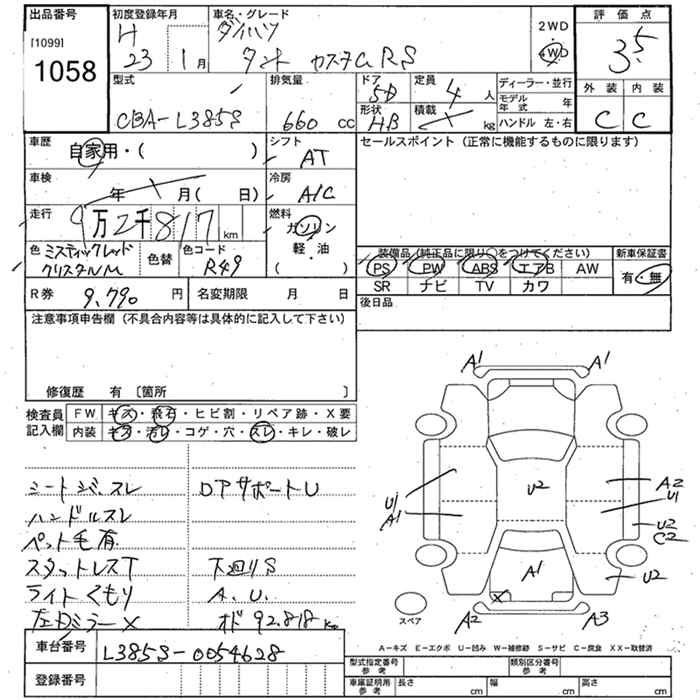 出品番号 初度登録年月 車名・グレード 評価点
[1099] H ダイハツ 2WD
1058 23年 1月 タント カスタムRS 4WD 3.5
型式 排気量 ドア 5D 定員 4人 ディーラー・並行 外装 内装
CBA-L385S 660 cc 形状 HB 積載 kg モデル年式 年 C C
ハンドル 左・右
車歴 自家用・( ) シフト AT セールスポイント (正常に機能するものに限ります)
車検 年 月( 日) 冷房 A/C
走行 9万2千817 km 燃料 ガソリン
軽・油
( )
色 ミスティックレッド 色替 色コード
クリスタルM R49
装備品 (純正品に限り○をつけてください) 新車保証書
PS PW ABS エアB AW 有・無
SR ナビ TV カワ
R券 9,790 円 名変期限 月 日 後日品
注意事項申告欄 (不具合内容等は具体的に記入して下さい)
修復歴 有 〔箇所 〕
検査員 FW キズ・飛石・ヒビ割・リペア跡・X要
記入欄 内装 キズ・汚レ・コゲ・穴・スレ・キレ・破レ
シートシミ、スレ ロアサポートU
ハンドルスレ
ペット毛有
スタットレスT 下廻りS
ライトくもり A.U.
左ドアミラーX オド92.818 km
A1 A1
U2 A2
U1 U1
A1 U2
C2
A1 U2
X
スペア A2 A3
A-キズ E-エクボ U-凹み W-補修跡 S-サビ C-腐食 XX-取替済
車台番号 L385S-0054628
登録番号
型式指定番号 参考 類別区分番号 参考
車庫証明用 参考 長さ cm 幅 cm 高さ cm